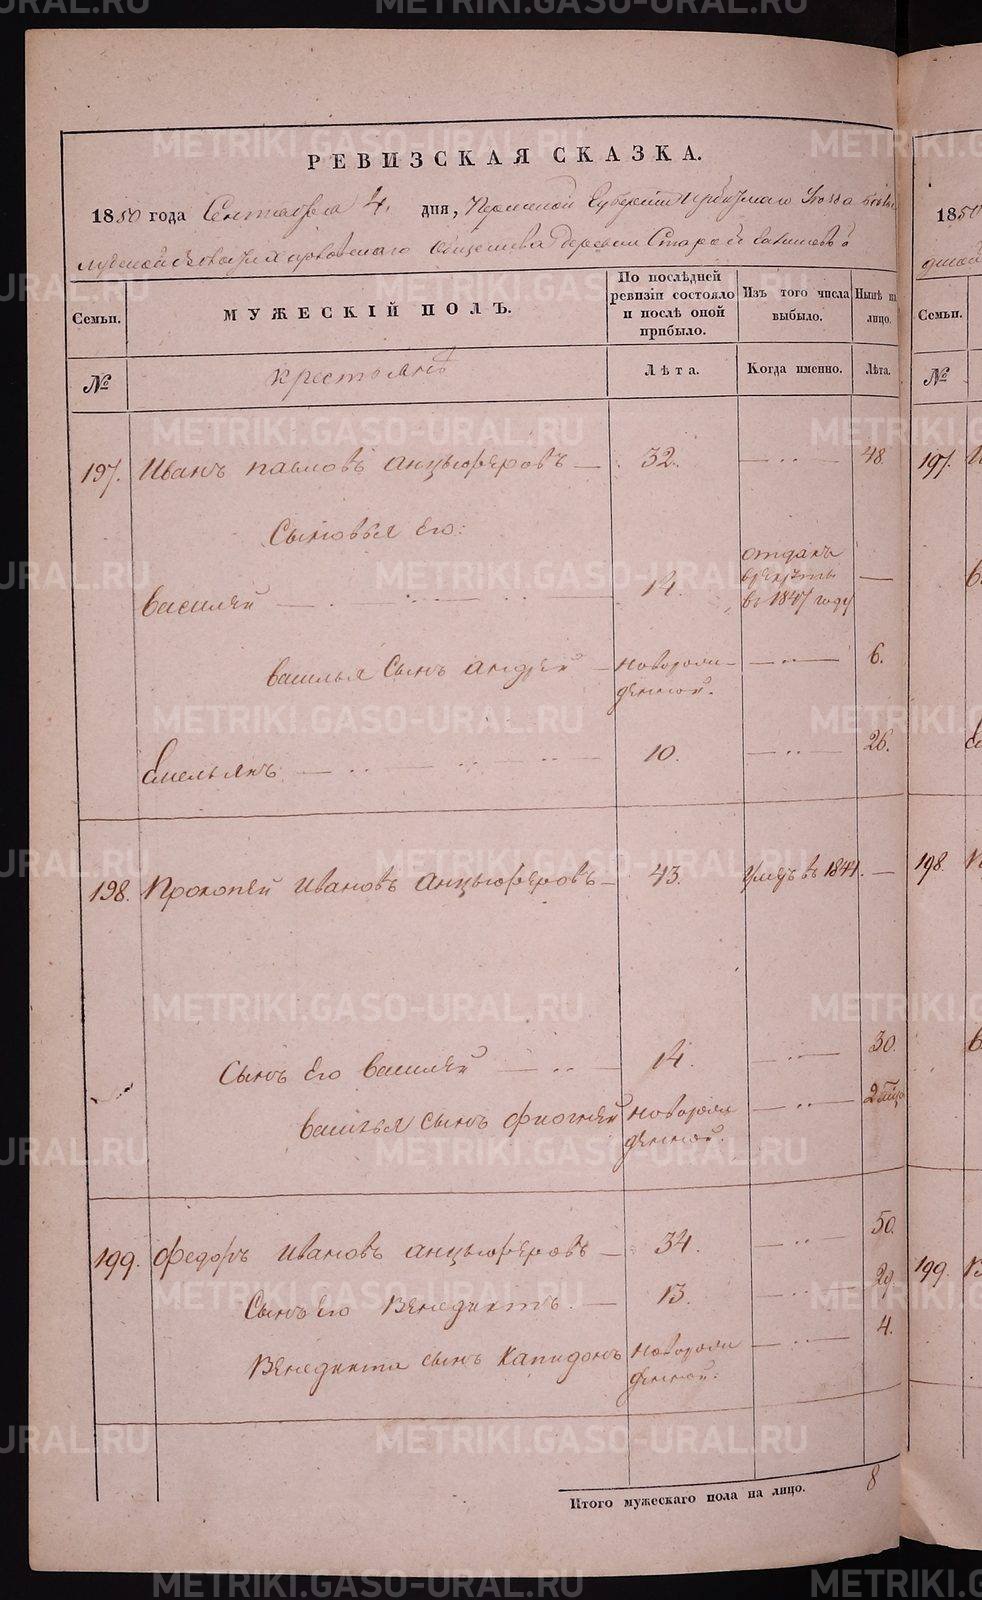 METRIKI.GASO-URAL.RU
РЕВИЗСКАЯ СКАЗКА.
1850 года Сентября 4. дня, Пермской Губернии Ирбитскаго Уезда
Общества Деревни Старой
Семьи.
МУЖЕСКІЙ ПОЛЪ.
По послѣдней ревизіи состояло и послѣ оной прибыло.
Изъ того числа выбыло.
Нынѣ на лицо.
№
крестьянѣ
Лѣта.
Когда именно.
Лѣта.
197. Иванъ павловъ анцыферовъ — 32. — 48.
Сыновья Его:
василей — 14. отданъ врекруты въ 1847 году —
василья сынъ андрей — новорожденной. — 6.
Емельянъ — 10. — 26.
198. Прокопей ивановъ анцыферовъ — 43. умеръ въ 1844. —
сынъ его василей — 14. — 30.
василья сынъ новорожденной. —
199. Федоръ ивановъ анцыферовъ — 34. — 50.
Сынъ Его Венедиктъ. — 13. — 29.
Венедикта сынъ Капидонъ новорожденной. — 4.
Итого мужескаго пола на лицо. 8
1850
Семьи.
№
197.
198.
199.